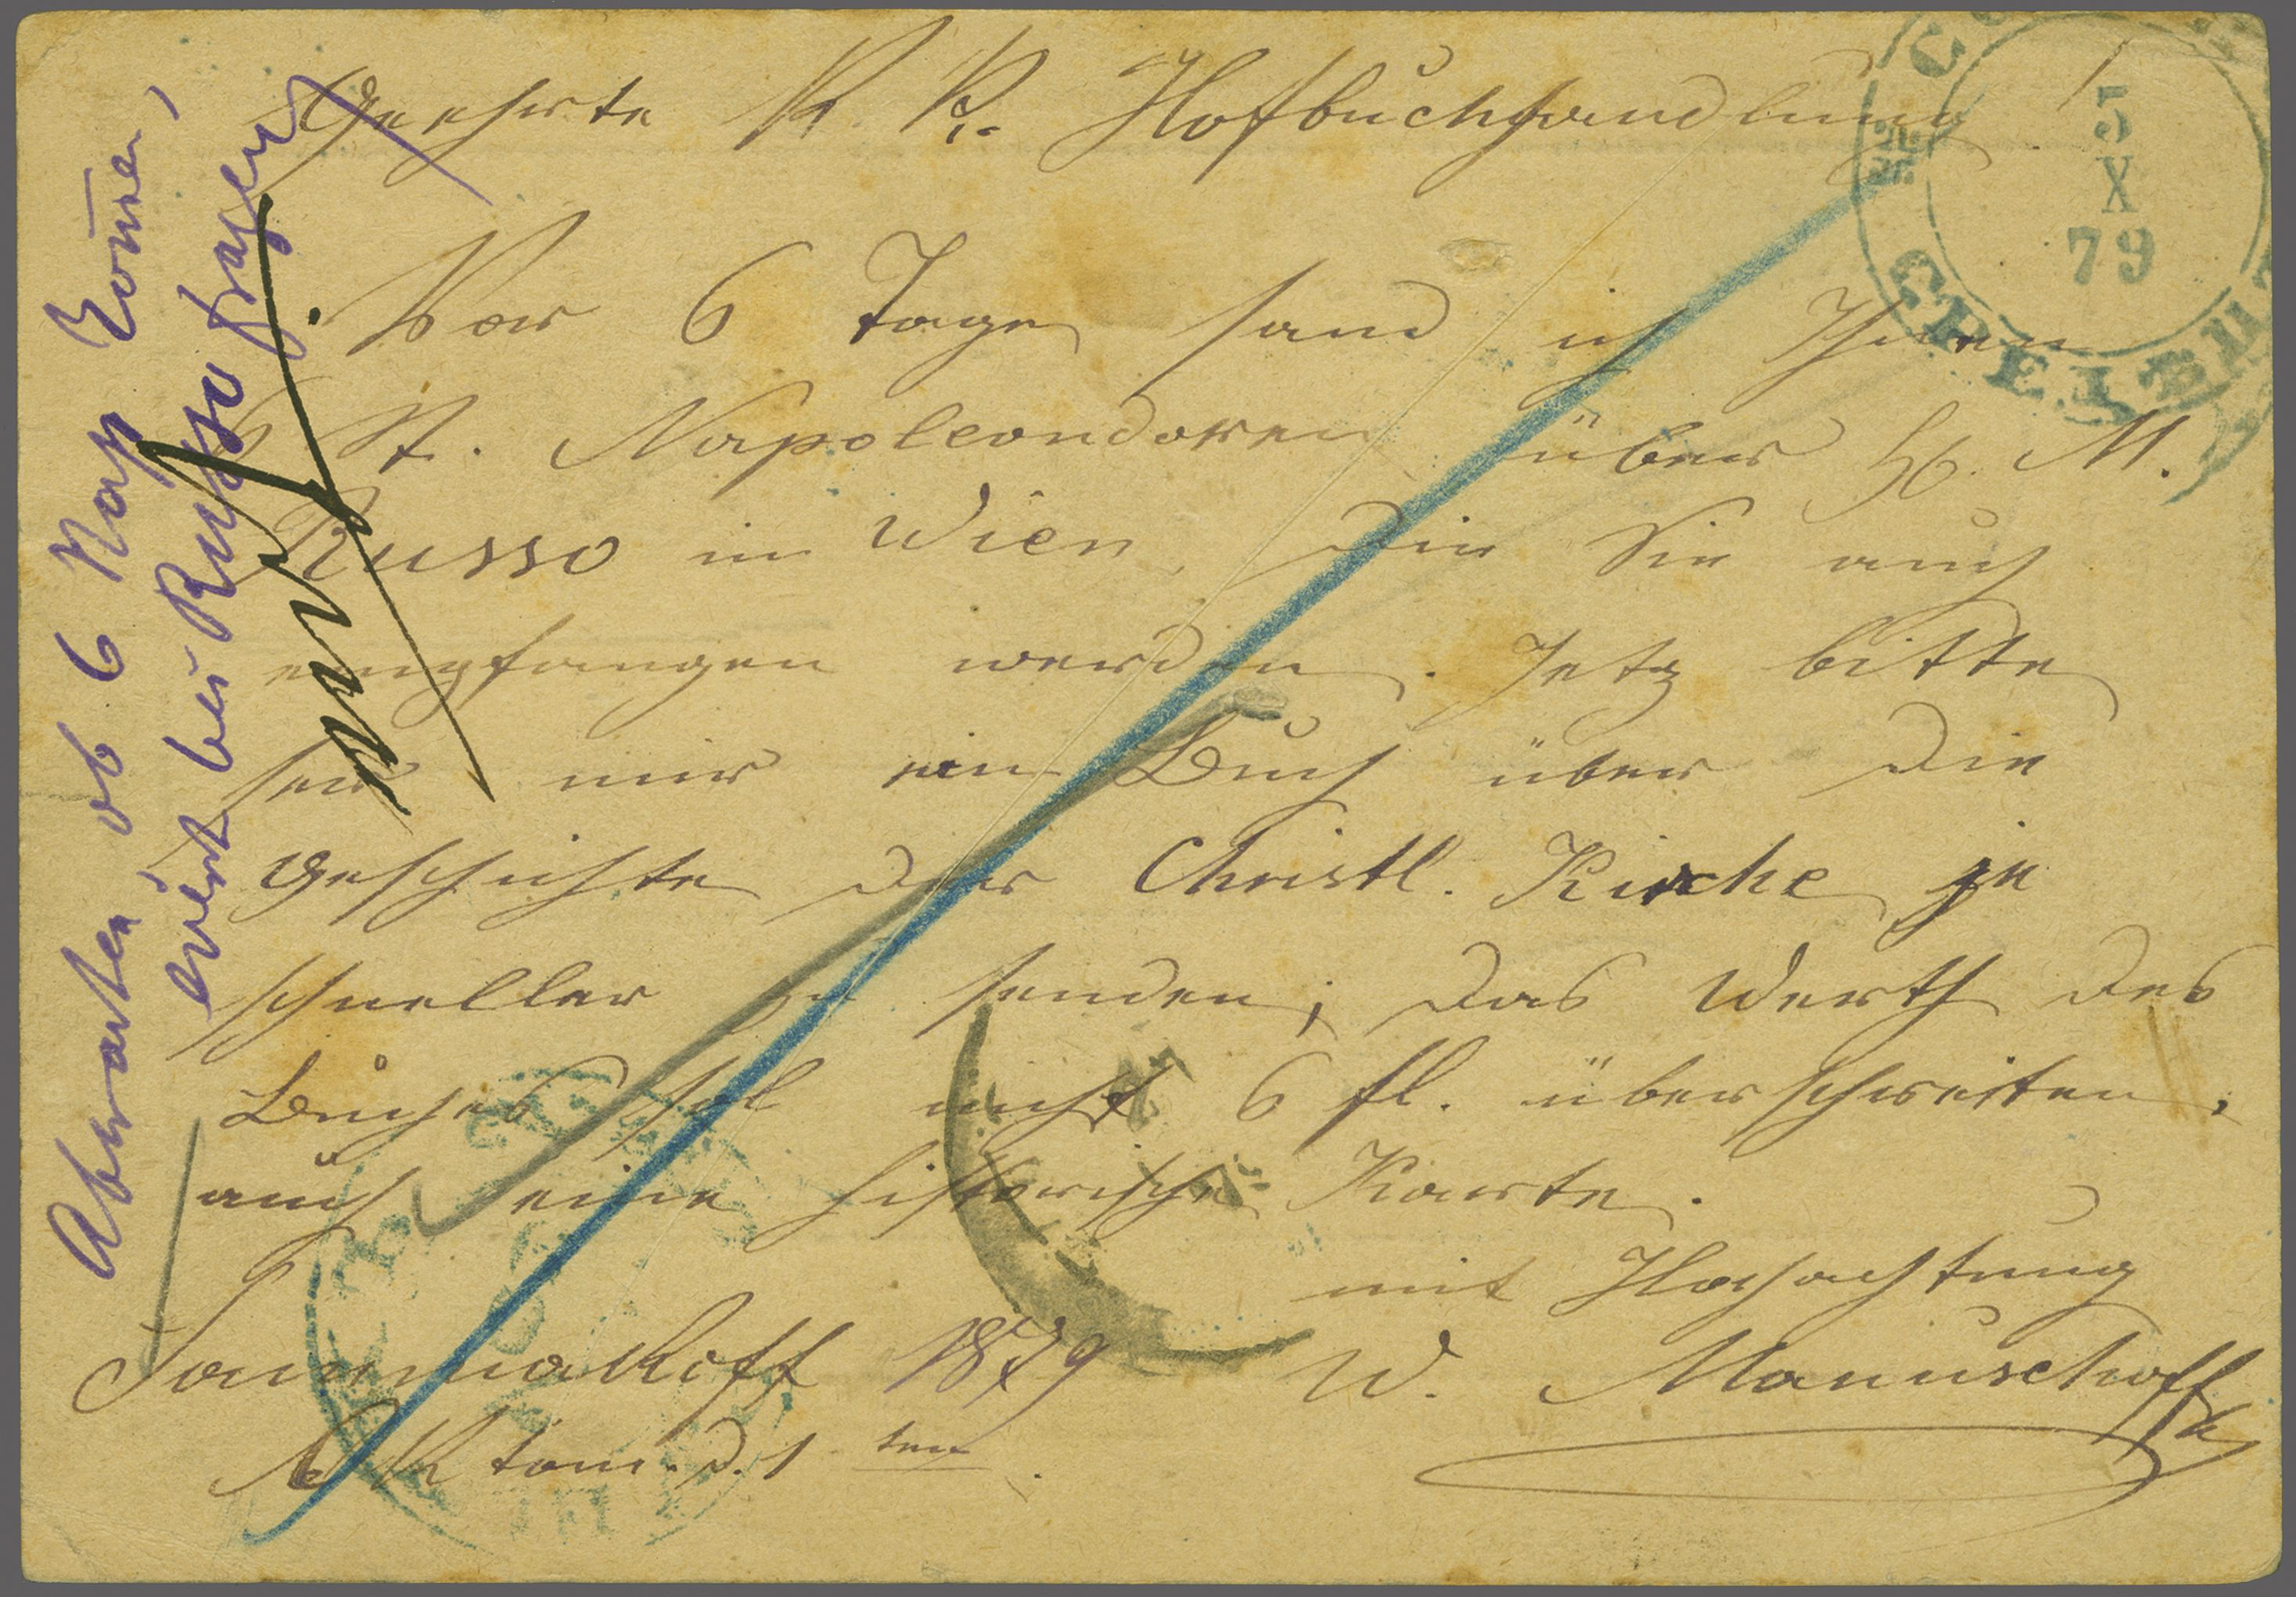 Geehrte K. K. Hofbuchhandlung!
Vor 6 Tage sand ich Ihnen
6 St. Napoleondoren über H. M.
Russo in Wien, die Sie auch
empfangen werden. Jetz bitte
ser mir ein Buch über die
Geschichte der Christl. Kirche je
schneller zu senden; das Werth des
Buches sol nicht 6 fl. überschreiten,
auch eine historische Karte.
mit Hochachtung
W. Manuschoff
1879
d. 1 ten
Abwarten ob 6 Nap kommen,
event bei Russo fragen
5
X
79